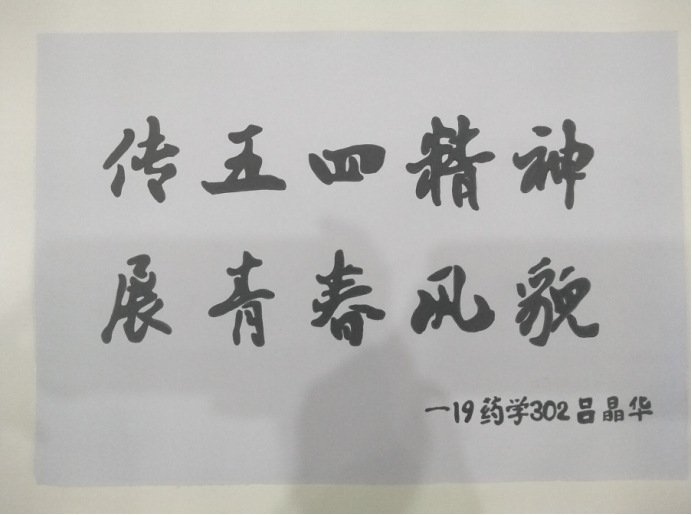 传五四精神
展青春风貌
一19药学302吕晶华